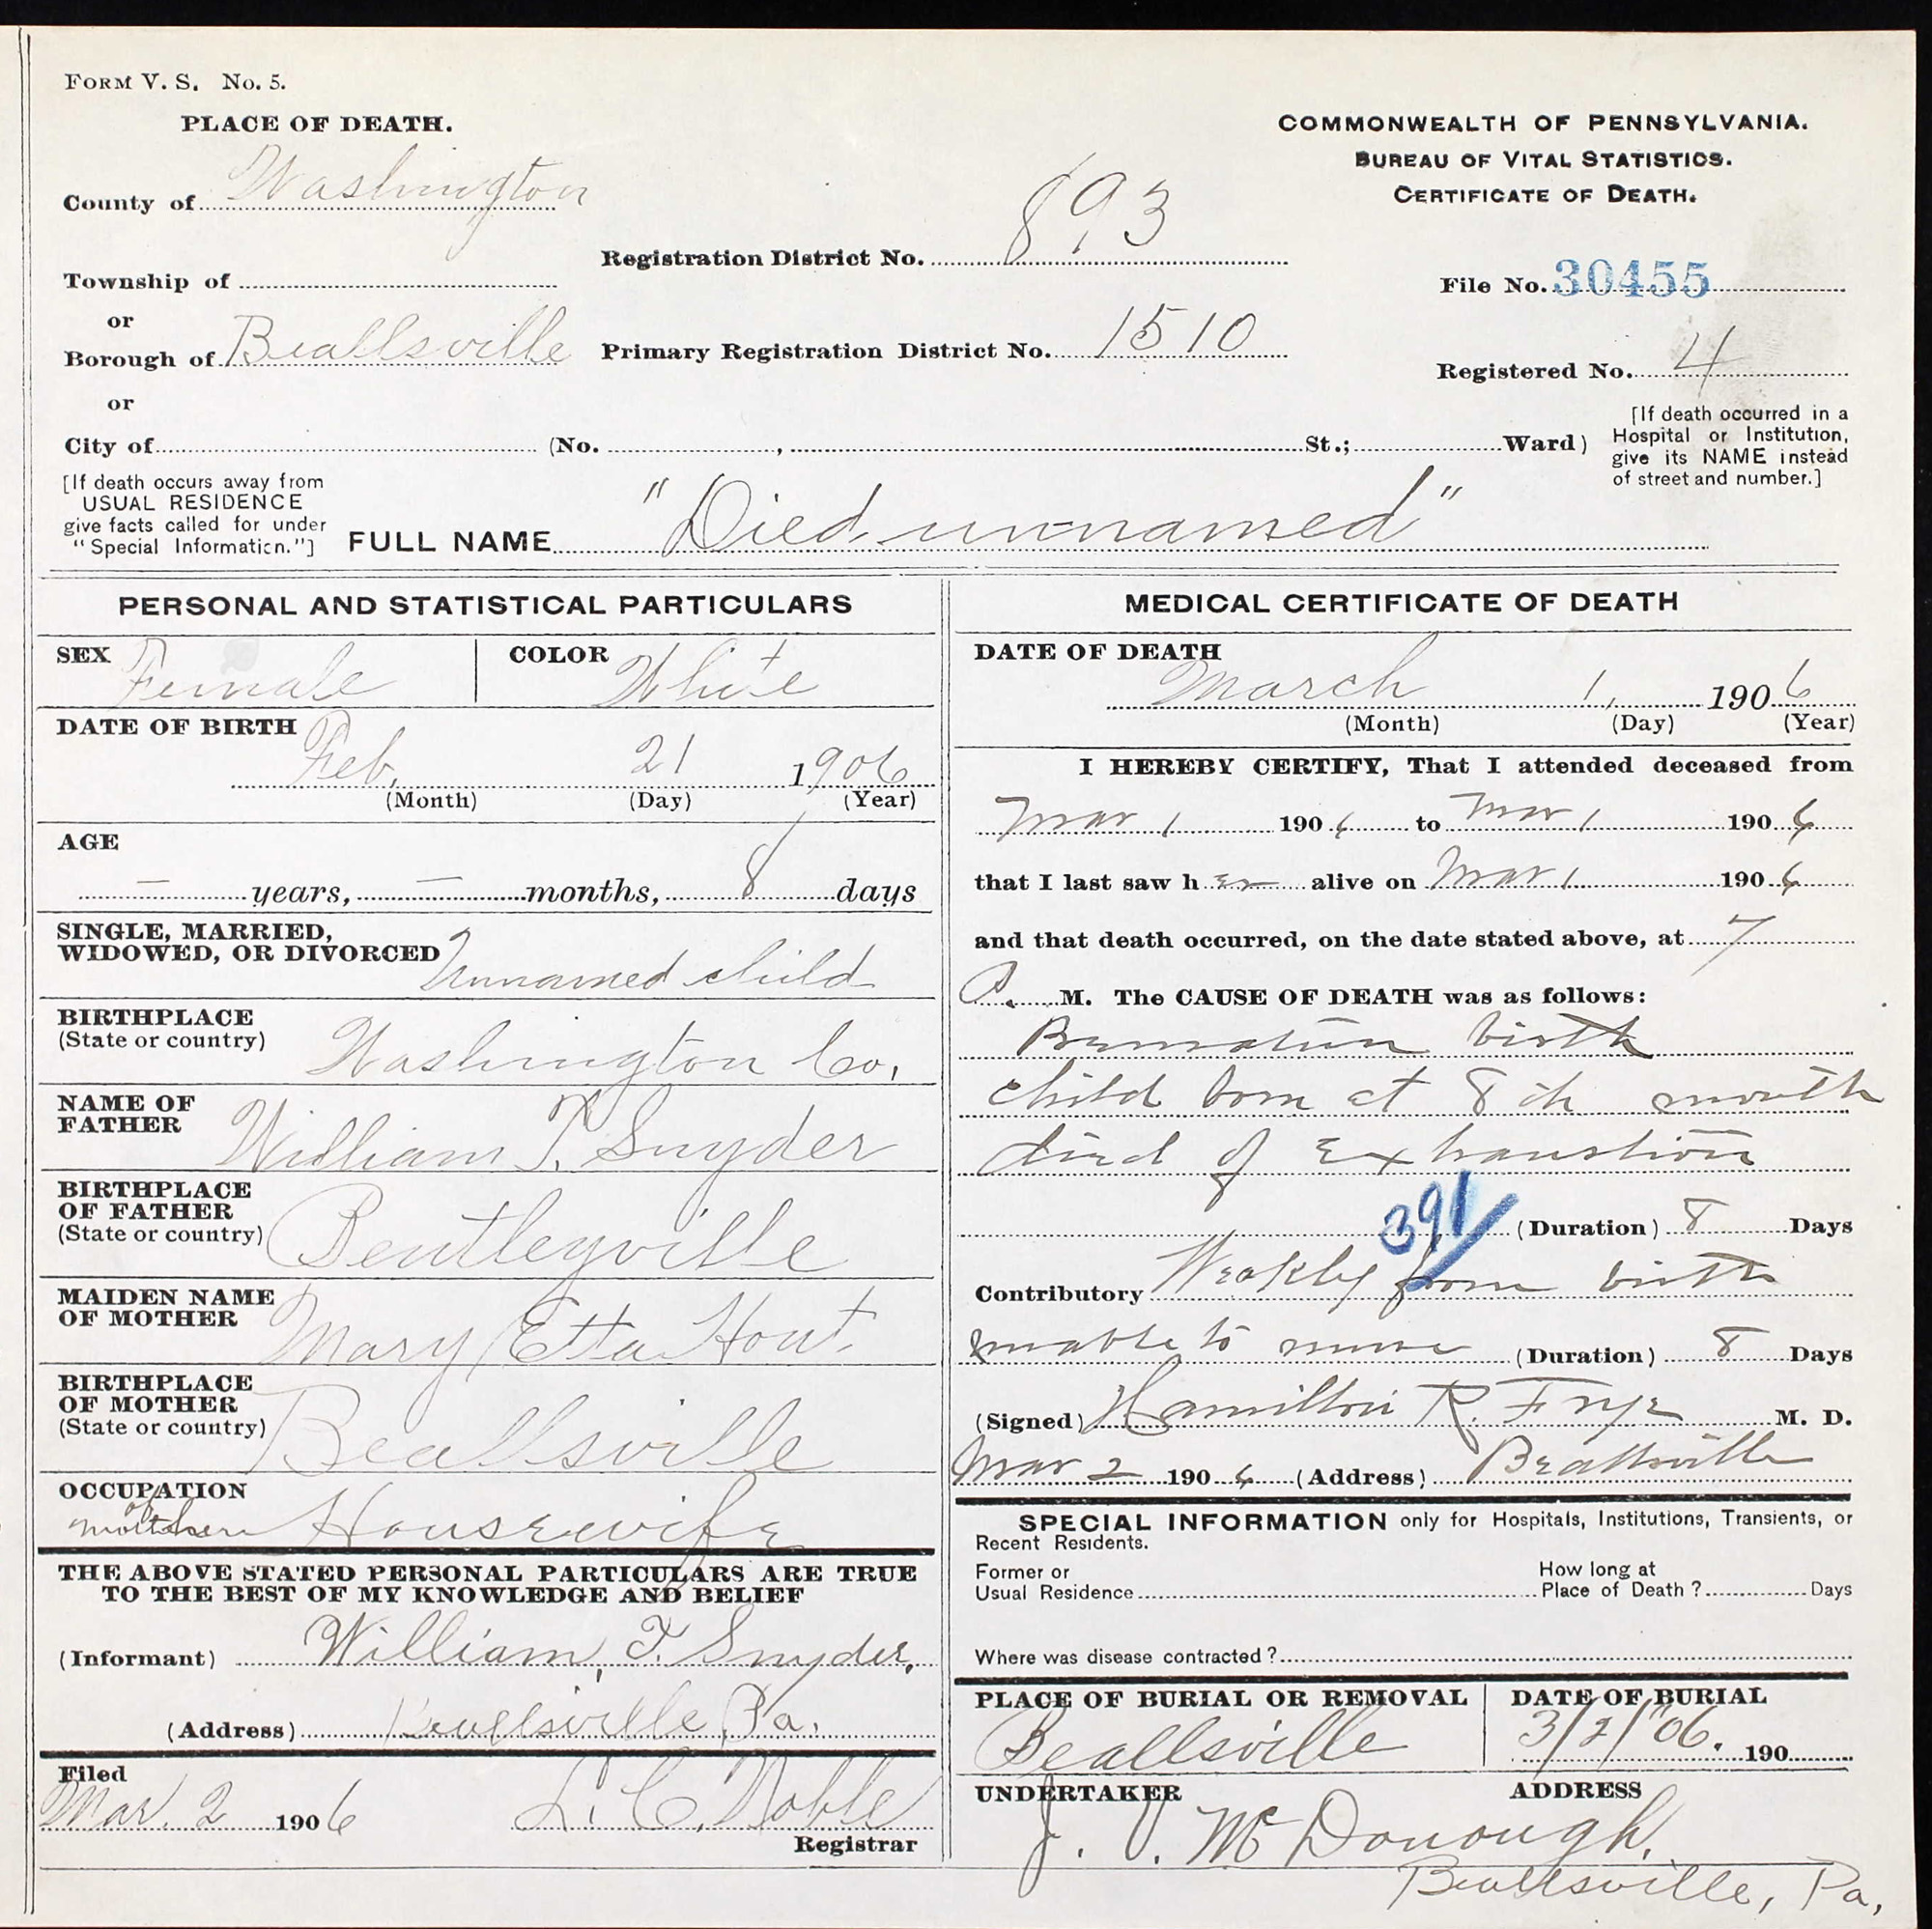 FORM V. S. No. 5.
PLACE OF DEATH.
County of Washington
Township of
or
Borough of Beallsville
or
City of (No. , St.; Ward)
Registration District No. 893
Primary Registration District No. 1510
COMMONWEALTH OF PENNSYLVANIA.
BUREAU OF VITAL STATISTICS.
CERTIFICATE OF DEATH.
File No. 30455
Registered No. 4
[If death occurred in a
Hospital or Institution,
give its NAME instead
of street and number.]
[If death occurs away from
USUAL RESIDENCE
give facts called for under
"Special Information."]
FULL NAME "Died unnamed"
PERSONAL AND STATISTICAL PARTICULARS
SEX Female COLOR White
DATE OF BIRTH Feb. 21 1906
(Month) (Day) (Year)
AGE
— years, — months, 8 days
SINGLE, MARRIED,
WIDOWED, OR DIVORCED Unnamed child
BIRTHPLACE
(State or country) Washington Co.
NAME OF
FATHER William T. Snyder
BIRTHPLACE
OF FATHER
(State or country) Bentleyville
MAIDEN NAME
OF MOTHER Mary Etta Hout.
BIRTHPLACE
OF MOTHER
(State or country) Beallsville
OCCUPATION
of mother Housewife
THE ABOVE STATED PERSONAL PARTICULARS ARE TRUE
TO THE BEST OF MY KNOWLEDGE AND BELIEF
(Informant) William, T. Snyder,
(Address) Beallsville Pa.
Filed
Mar. 2 1906 L. C. Noble
Registrar
MEDICAL CERTIFICATE OF DEATH
DATE OF DEATH
March 1, 1906
(Month) (Day) (Year)
I HEREBY CERTIFY, That I attended deceased from
Mar 1 1906 to Mar 1 1906
that I last saw her alive on Mar 1 1906
and that death occurred, on the date stated above, at 7
P. M. The CAUSE OF DEATH was as follows:
Premature birth
child born at 8th month
died of Exhaustion
391 (Duration) 8 Days
Contributory Weakly from birth
unable to nurse (Duration) 8 Days
(Signed) Hamilton R. Frye M. D.
Mar 2 1906 (Address) Beallsville
SPECIAL INFORMATION only for Hospitals, Institutions, Transients, or
Recent Residents.
Former or
Usual Residence
How long at
Place of Death? Days
Where was disease contracted?
PLACE OF BURIAL OR REMOVAL
Beallsville
DATE OF BURIAL
3/2/06. 190
UNDERTAKER ADDRESS
J. V. McDonough.
Beallsville, Pa,